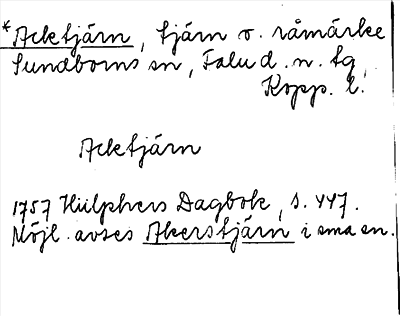 *Acktjärn, tjärn o. råmärke
Sundborns sn, Falu d. n. tg,
Kopp. l.
Acktjärn
1757 Hülphers Dagbok, s. 447.
Möjl. avses Akerstjärn i sma sn.